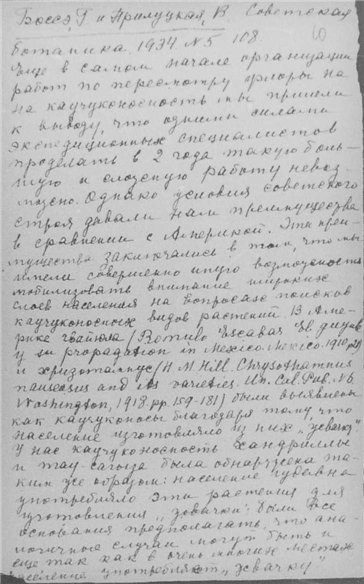 Боссэ, Г и Прилуцкая, В Советская
ботаника 1934 №5 108
Еще в самом начале организации
работ по пересмотру флоры на
на каучуконосность мы пришли
к выводу, что одними силами
экспедиционных специалистов
проделать в 2 года такую боль-
шую и сложную работу невоз-
можно. Однако условия советского
строя давали нам преимущества
в сравнении с Америкой. Эти преи-
мущества заключались в том что мы
имели совершенно иную возможность
мобилизовать внимание широких
слоев населения на вопросах поисков
каучуконосных видов растений. В Аме-
рике гваюла (Romulo Escabas El guayule
y su propadation en Mexico. Mexico. 1910
и хризотамнус (H M Hill. Chrysothamnus
nauseasus and its varietes. Un. Cal. Pub. №6
Washington, 1918 pp. 159-181) были выявлены
как каучуконосы благодаря тому, что
население изготовляло из них „жвачку"
У нас каучуконосность хондриллы
и тау-сагыза была обнаружена та-
ким же образом: население издевна
употребляло эти растения для
изготовления „жвачки". Были все
основания предполагать, что ана
логичные случаи могут быть и
еще так как в очень многих местах
население употребляет „жвачку"